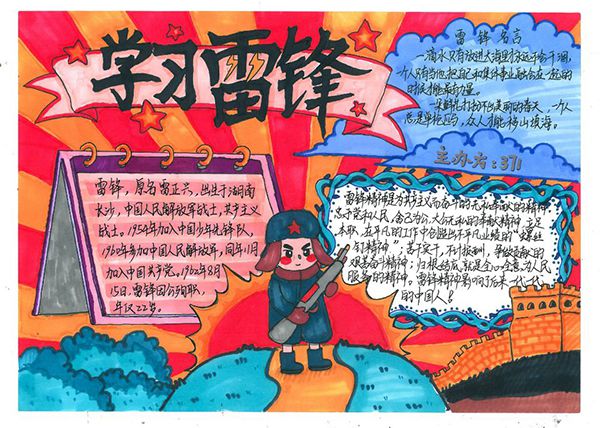 学习雷锋
雷锋名言
一滴水只有放进大海里才永远不会干涸，
一个人只有当他把自己和集体事业融合在一起的
时候才能最有力量。
一朵鲜花打扮不出美丽的春天，一个人
总是单枪匹马，众人才能移山填海。
主办者：371
雷锋，原名雷正兴，出生于湖南
长沙，中国人民解放军战士，共产主义
战士。1954年加入中国少年先锋队，
1960年参加中国人民解放军，同年11月
加入中国共产党。1962年8月
15日，雷锋因公殉职，
年仅22岁。
雷锋精神是为共产主义而奋斗的无私奉献的精神；
忠于党和人民、舍己为公、大公无私的奉献精神；立足
本职、在平凡的工作中创造出不平凡业绩的“螺丝
钉精神”；苦干实干、不计报酬、争做贡献的
艰苦奋斗精神；归根结底就是全心全意为人民
服务的精神。雷锋精神影响了后来一代一代
的中国人！